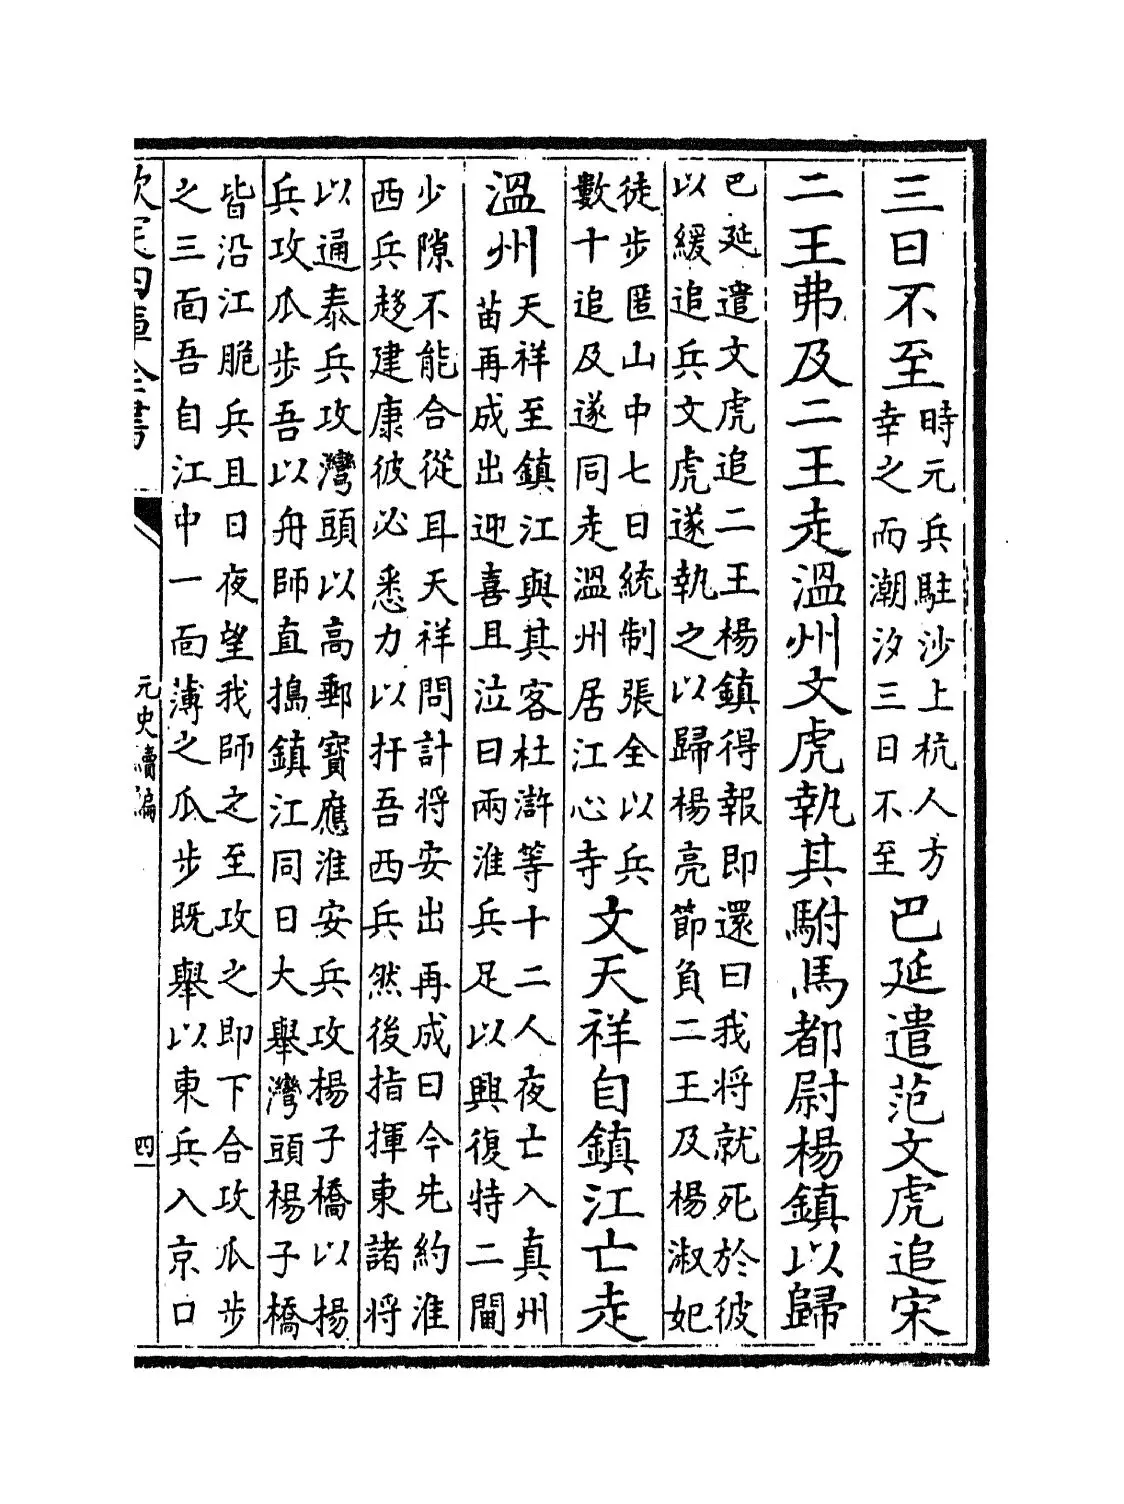 三日不至
時元兵駐沙上杭人方
幸之而潮汐三日不至
巴延遣范文虎追宋
二王弗及二王走溫州文虎執其駙馬都尉楊鎮以歸
巴延遣文虎追二王楊鎮得報即還曰我將就死於彼
以緩追兵文虎遂執之以歸楊亮節負二王及楊淑妃
徒步匿山中七日統制張全以兵
數十追及遂同走溫州居江心寺
文天祥自鎮江亡走
溫州
天祥至鎮江與其客杜滸等十二人夜亡入真州
苗再成出迎喜且泣曰兩淮兵足以興復特二閫
少隙不能合從耳天祥問計將安出再成曰今先約淮
西兵趍建康彼必悉力以扞吾西兵然後指揮東諸將
以通泰兵攻灣頭以高郵寶應淮安兵攻楊子橋以揚
兵攻瓜步吾以舟師直搗鎮江同日大舉灣頭楊子橋
皆沿江脆兵且日夜望我師之至攻之即下合攻瓜步
之三面吾自江中一面薄之瓜步既舉以東兵入京口
欽定四庫全書
元史續編
四